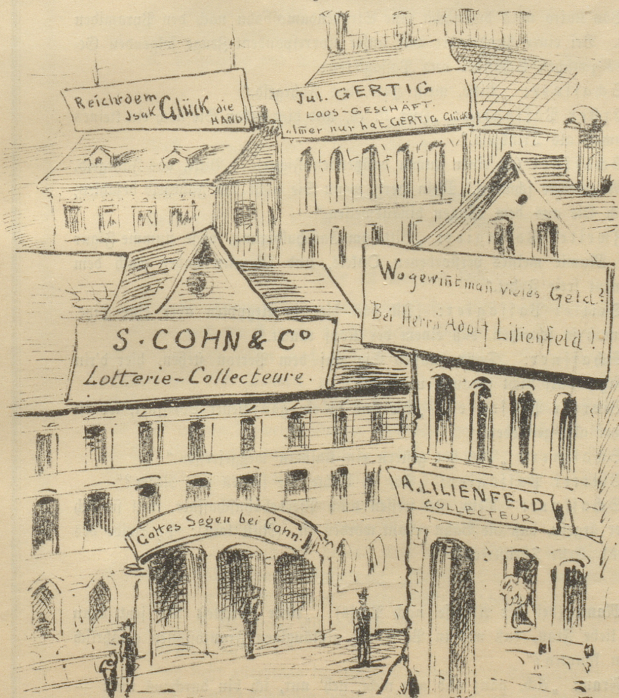 Reich dem
Isak Glück die
HAND
Jul. GERTIG
LOOS-GESCHÄFT.
Imer nur hat GERTIG Glück
Wo gewiñt man vieles Geld?
Bei Herrn Adolf Lilienfeld!
S. COHN & Cº
Lotterie-Collecteure.
A. LILIENFELD
COLLECTEUR
Gottes Segen bei Cohn.